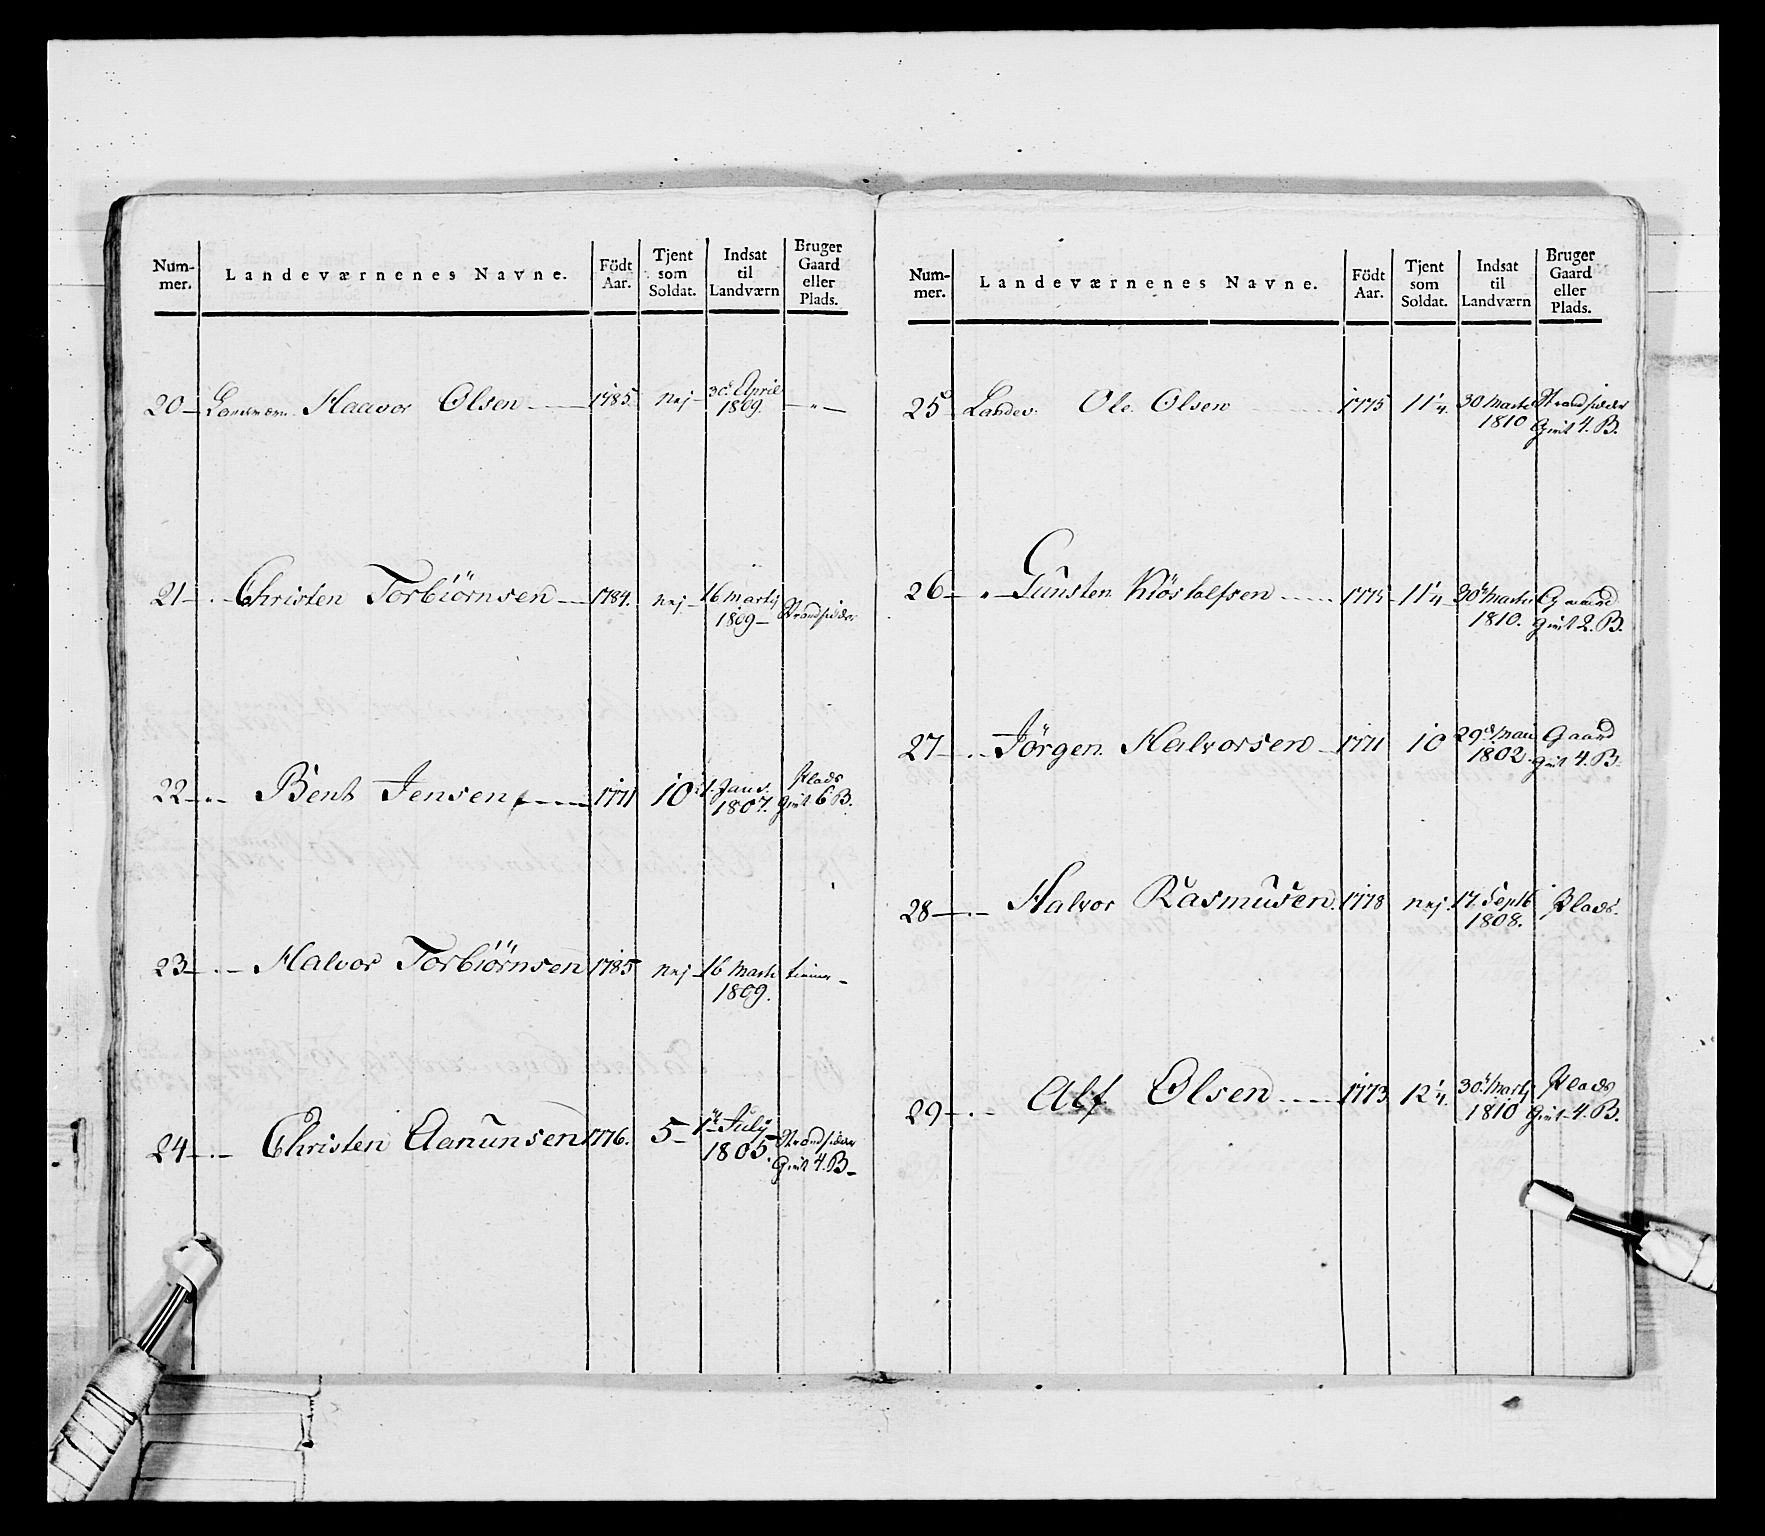 Num-
mer.
Landeværnenes Navne.
Födt
Aar.
Tjent
som
Soldat.
Indsat
til
Landværn
Bruger
Gaard
eller
Plads.
20 — Landværn. Haavor Olsen — 1785. nej — 30. April — " —
1809.
21 — . — Christen Torbiörnsen — 1784. nej — 16 Martij
1809 — Strandsidder
22 — " — Bent Jensen — 1771 10 1. Janv. Plads
1807. givt 6 B.
23 — . — Halvor Torbiörnsen 1785 nej — 16 Martii
1809.
24 — . — Christen Aanunsen 1776. 5 — 1st July Strandsidder
1805. givt 4. B —
Num-
mer.
Landeværnenes Navne.
Födt
Aar.
Tjent
som
Soldat.
Indsat
til
Landværn
Bruger
Gaard
eller
Plads.
25 Landev. Ole Olsen 1775 11 1/4. 30 Martii Strandsidder
1810 givt 4. B.
26 — " — Gunsten Kiöstolfsen 1775 — 11 1/4 — 30 Martii Gaard
1810. givt 2. B.
27 — . — Jörgen Halvorsen — 1771 10 29d Maii Gaard
1802. givt 4. B.
28 — . — Halvor Rasmusen. 1778 nej. 17. Septb Plads.
1808.
29 — . — Alf Olsen — 1773 12 1/4. 30. Martij Plads
1810 givt 4. B.